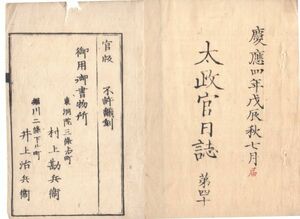 慶應四年戊辰秋七月届
太政官日誌
第四十
官版
不許翻刻
御用御書物所
東洞院三條上ル町
村上勘兵衞
堀川二條下ル町
井上治兵衞